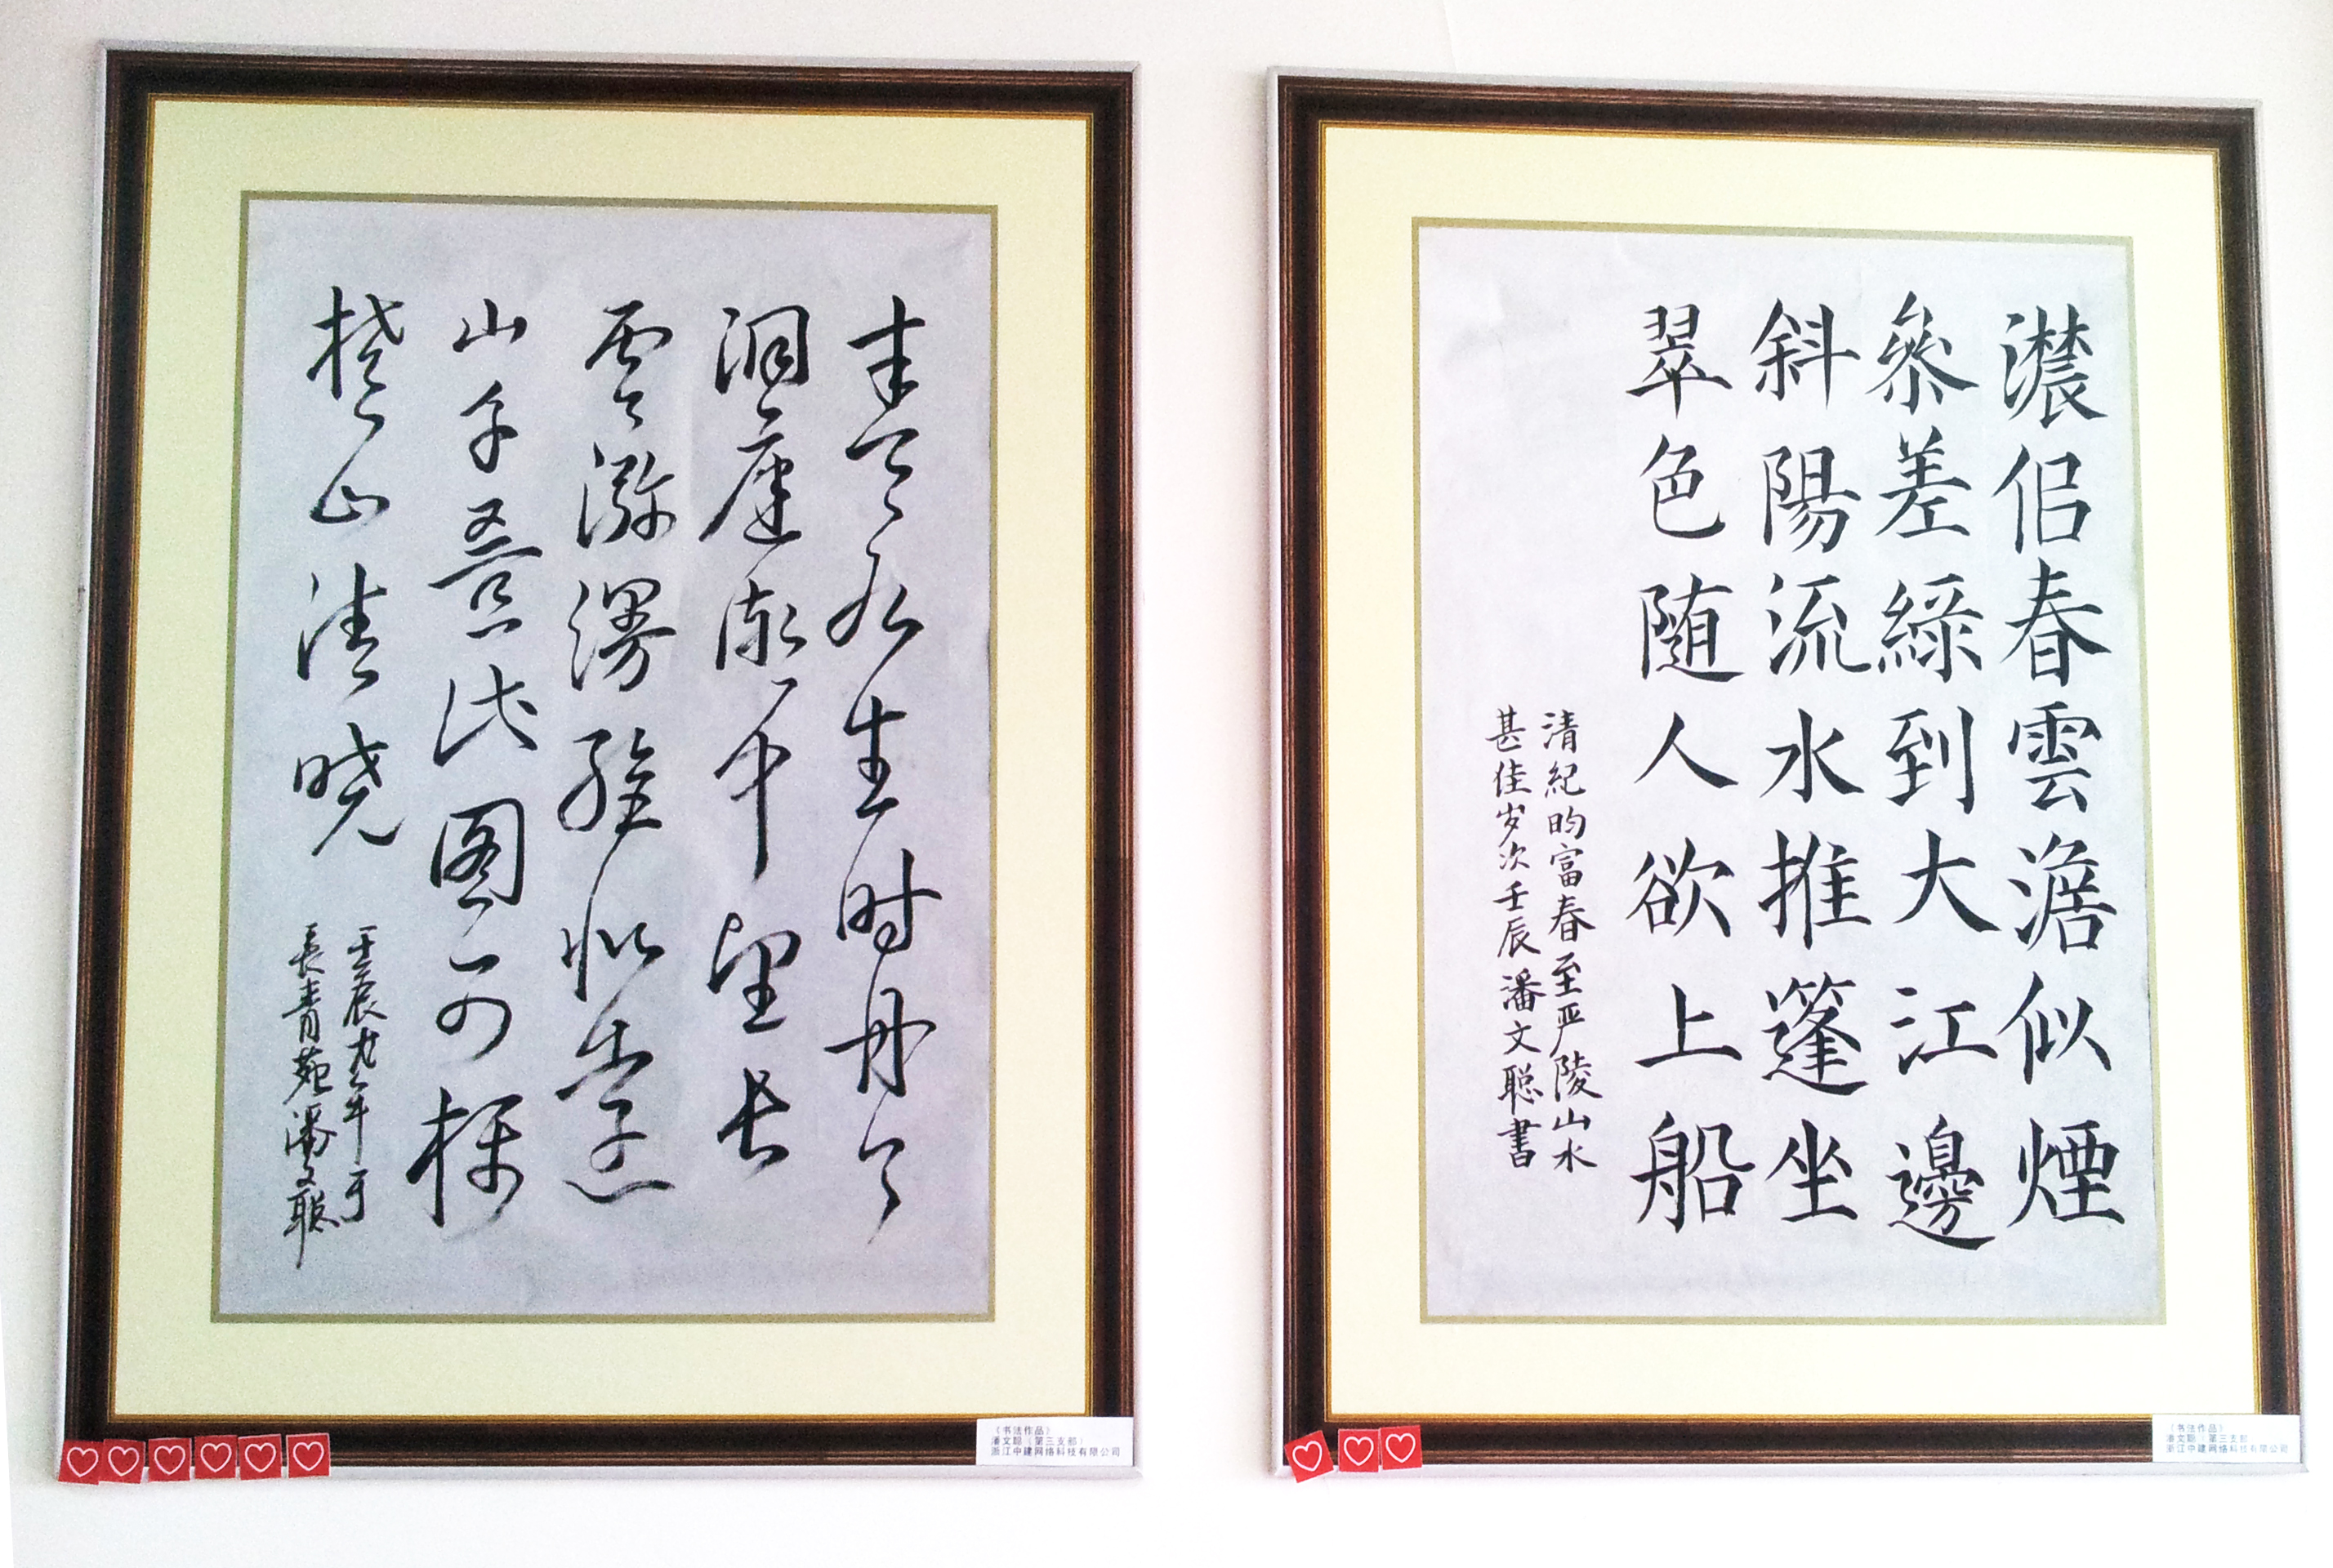 生时
洞庭湖中望长
云弥漫绝似
山吾此图可
楚山清晓
壬辰
長青苑潘文聪
《书法作品》
潘文聪（第三支部）
浙江中建网络科技有限公司
濃侣春雲澹似煙
參差綠到大江邊
斜陽流水推篷坐
翠色随人欲上船
清紀昀富春至严陵山水
甚佳岁次壬辰潘文聪書
《书法作品》
潘文聪（第三支部）
浙江中建网络科技有限公司